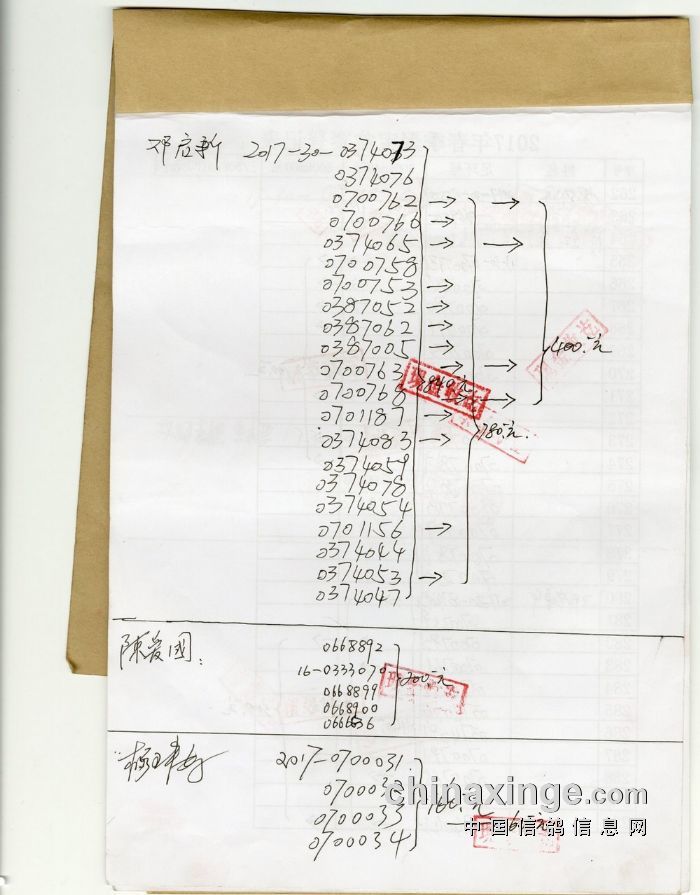 邓启新 2017-30-0374073
0374076
0700762 → →
0700766 →
0374065 → →
0700758
0700753 →
0387052 →
0387062 →
0387005 → 400.元
0700763 → →
0700768 840元 → →
0701187 → 780元.
0374083 →
0374059
0374078
0374054
0701156 →
0374044
0374053 →
0374047
陳爱国: 0668892
16-0333070 200元
0668899
0668900
0666636
2017-0700031
0700032
0700033 160.元
0700034
chinaxinge.com
中国信鸽信息网